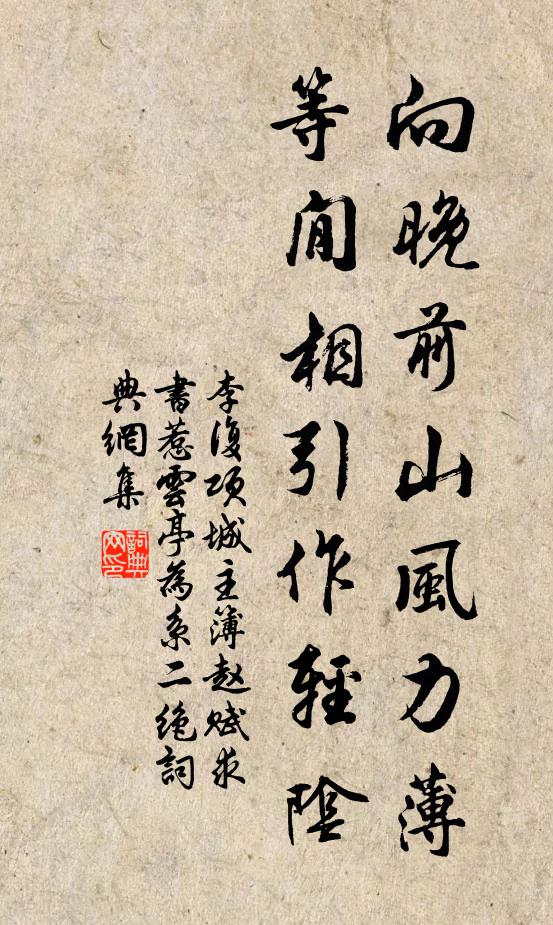 向晚前山風力薄
等閒相引作輕陰
李復項城主簿赵賦求
書惹雲亭為系二絶詞
典網集
詞典网印